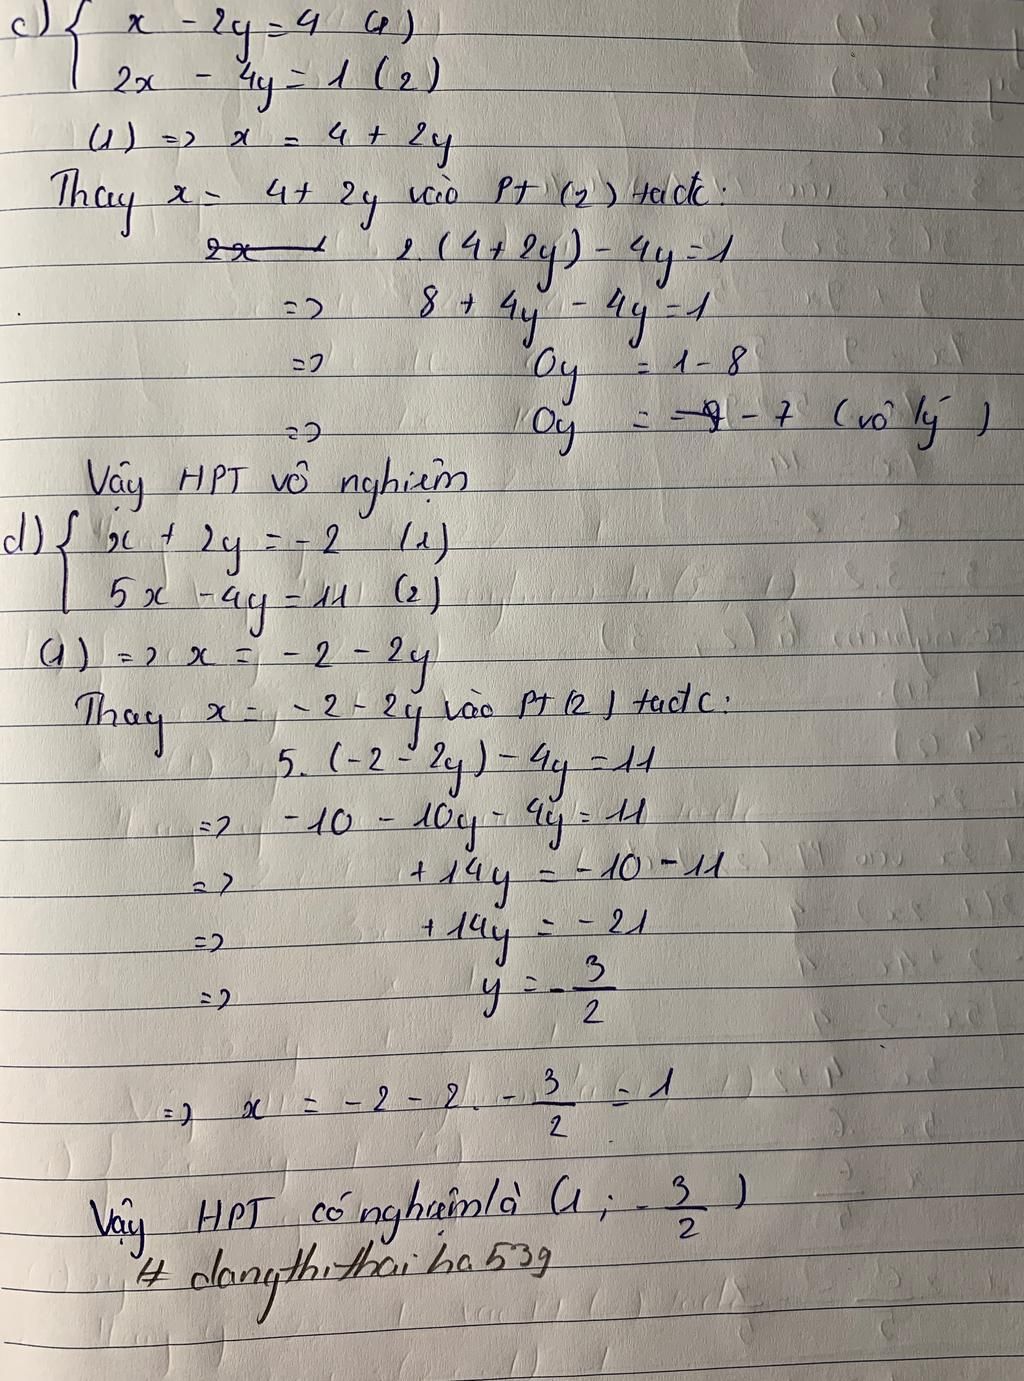 c) { x - 2y = 4 (1)
2x - 4y = 1 (2)
(1) => x = 4 + 2y
Thay x = 4 + 2y vào Pt (2) tađc:
2x 2.(4 + 2y) - 4y = 1
=> 8 + 4y - 4y = 1
=> 0y = 1 - 8
=> 0y = - 7 (vô lý)
Vậy HPT vô nghiệm
d) { x + 2y = -2 (1)
5x - 4y = 11 (2)
(1) => x = -2 - 2y
Thay x = -2 - 2y vào Pt (2) tađc:
5. (-2 - 2y) - 4y = 11
=> -10 - 10y - 4y = 11
=> +14y = -10 - 11
=> +14y = -21
=> y = -3/2
=> x = -2 - 2. -3/2 = 1
Vậy HPT có nghiệm là (1; -3/2)
# dangthithaiha539